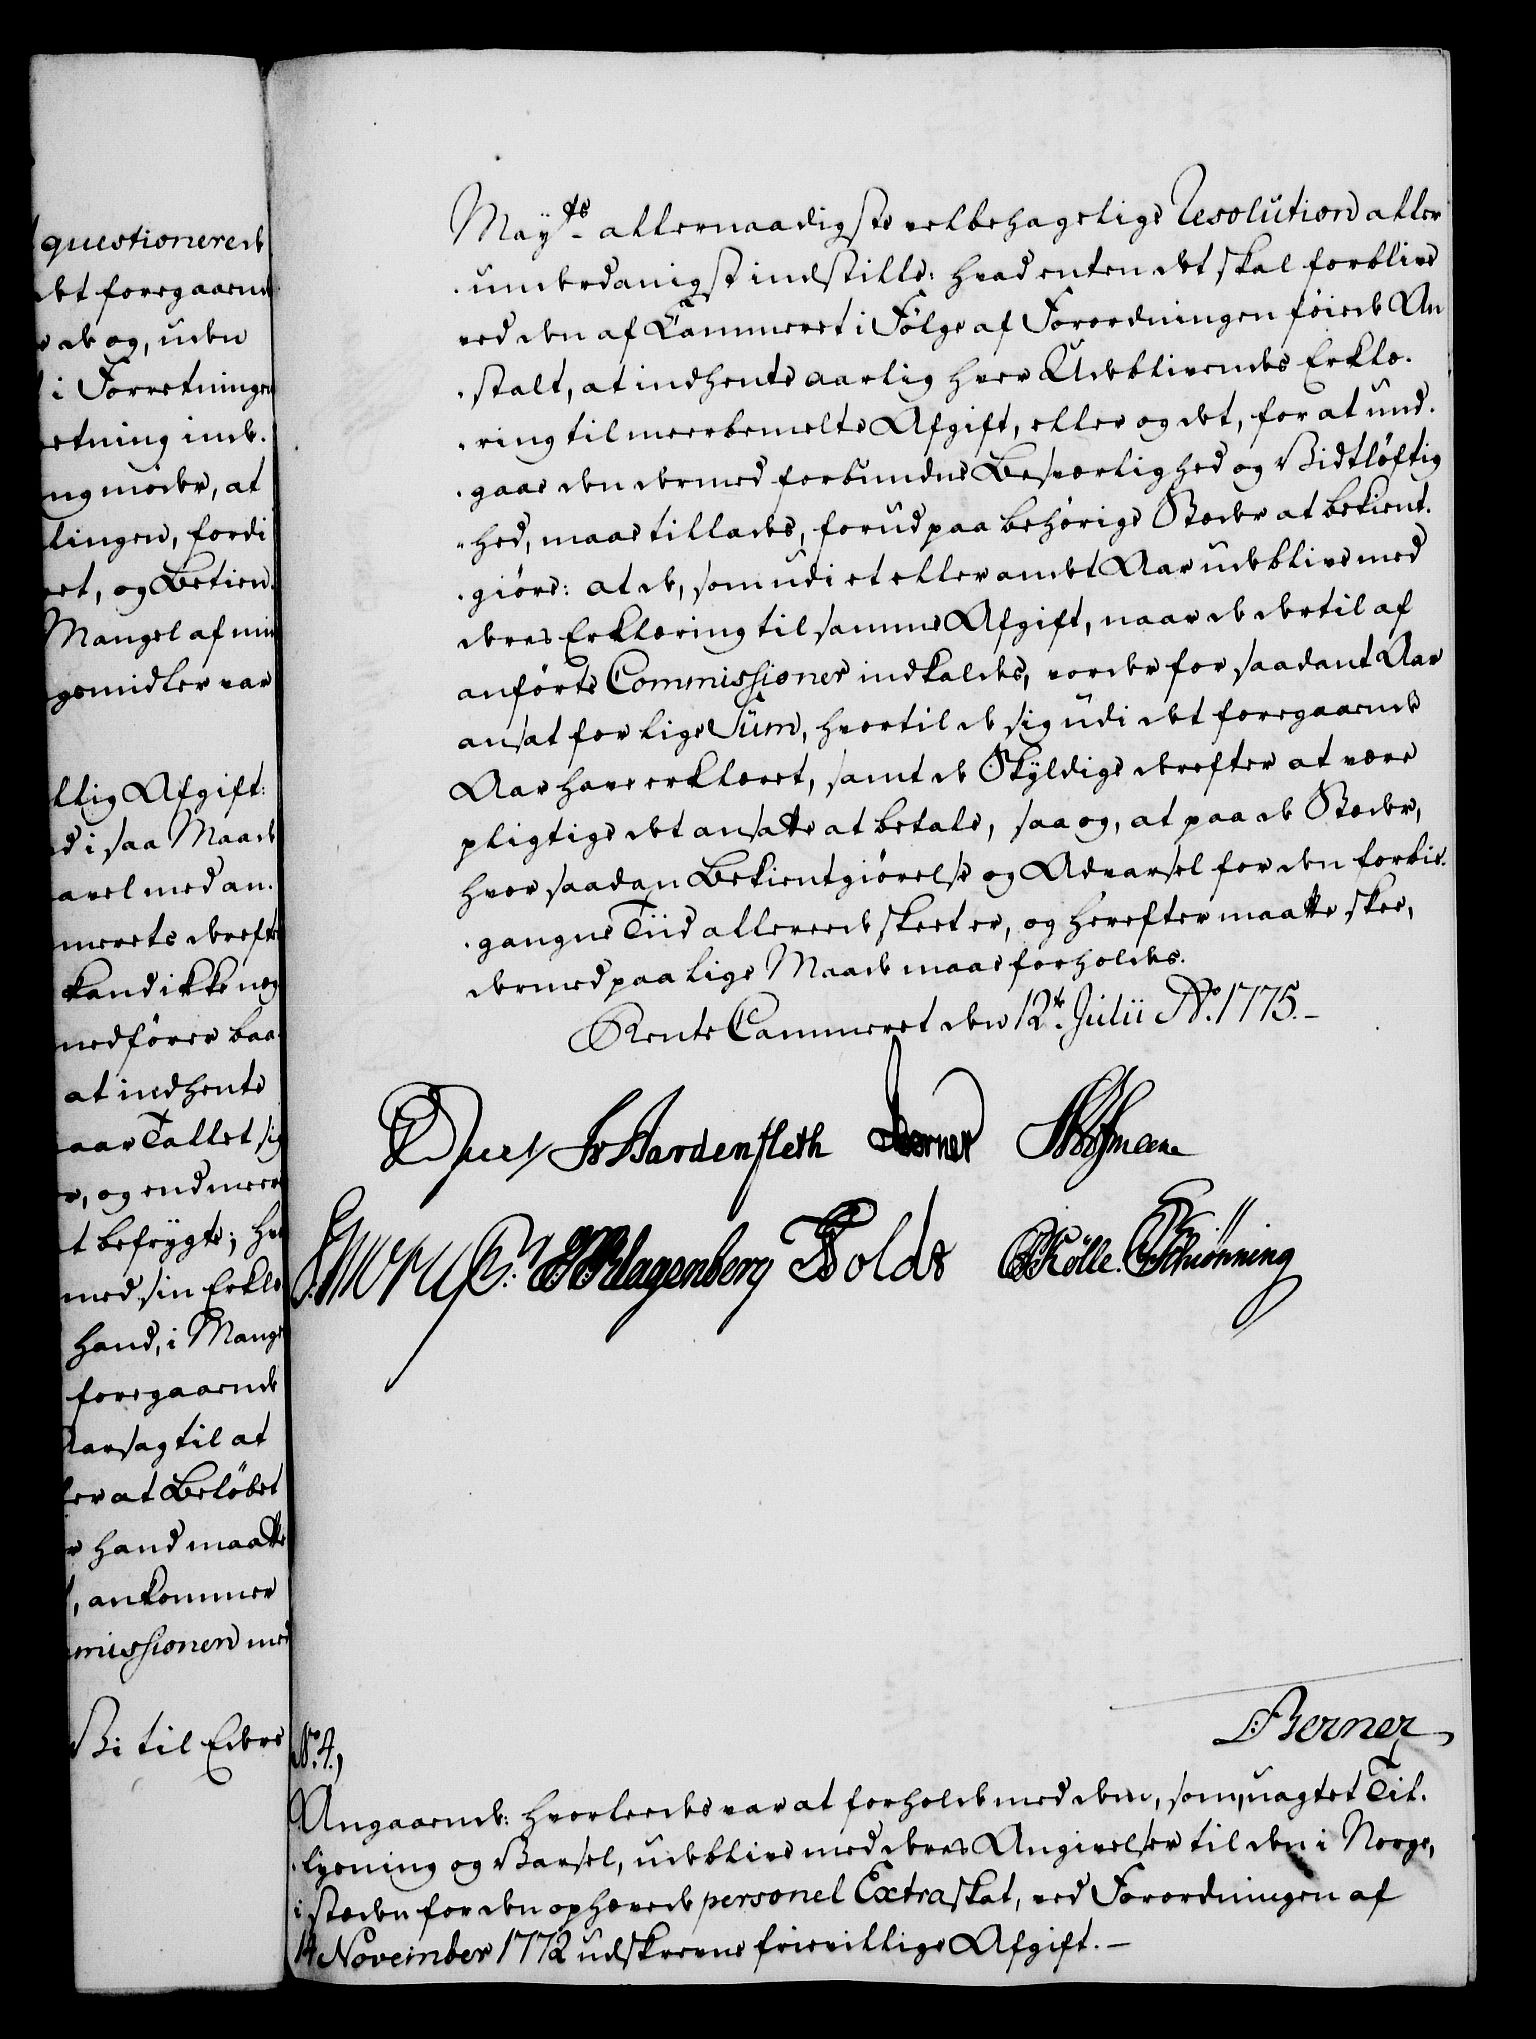 questionerede
det foregaaende
de og, uden
i Forretningen
etning inde.
ng møder, at
lingen, fordi
et, og Betien.
Mangel af min
gemidler var
llig Afgift:
d i saa Maade
avel med an.
merets derefter
kand ikke nog
medfører baa
at indhente
aar Tallet sig
r, og end meere
t befrygte; hv
med sin Erklæ
hand, i Mangel
foregaaende
Aarsag til at
ler at Beløbet
r hand maatte
, ankommer
missionen med
Vi til Eders
Mayts allernaadigste velbehagelige Resolution aller
underdanigst indstille: hvad enten det skal forblive
ved den af Cammeret i Følge af Forordningen føiede An
stalt, at indhente aarlig hver Udeblivendes Erklæ.
ring til meerbemelte Afgift, eller og det, for at und.
gaae den dermed forbundne Besværlighed og Vidtløftig
hed, maae tillades, forud paa behørige Stæder at bekient.
giøre: at de, som udi et eller andet Aar udeblive med
deres Erklæring til samme Afgift, naar de dertil af
anførte Commissioner indkaldes, vorder for saadant Aar
ansat for lige Sum, hvortil de sig udi det foregaaende
Aar have erklæret, samt de Skyldige derefter at være
pligtige det ansatte at betale, saa og, at paa de Stæder,
hvor saadan Bekientgiørelse og Advarsel for den forbie.
gangne Tiid allereede skeet er, og herefter maatte skee,
dermed paa lige Maade maae forholdes.
Rente Cammeret den 12te Julii Ao. 1775.
Hardenfleth Berner Hofmann
Klagenberg Told Kølle. Schiønning
Berner
No. 4,
Angaaende: hvorleedes var at forholde med dem, som, uagtet Til.
lysning og Varsel, udeblive med deres Angivelser til den i Norge,
i stæden for den ophævede personel Extraskat, ved Forordningen af
14 November 1772 udskrevne frievillige Afgift.